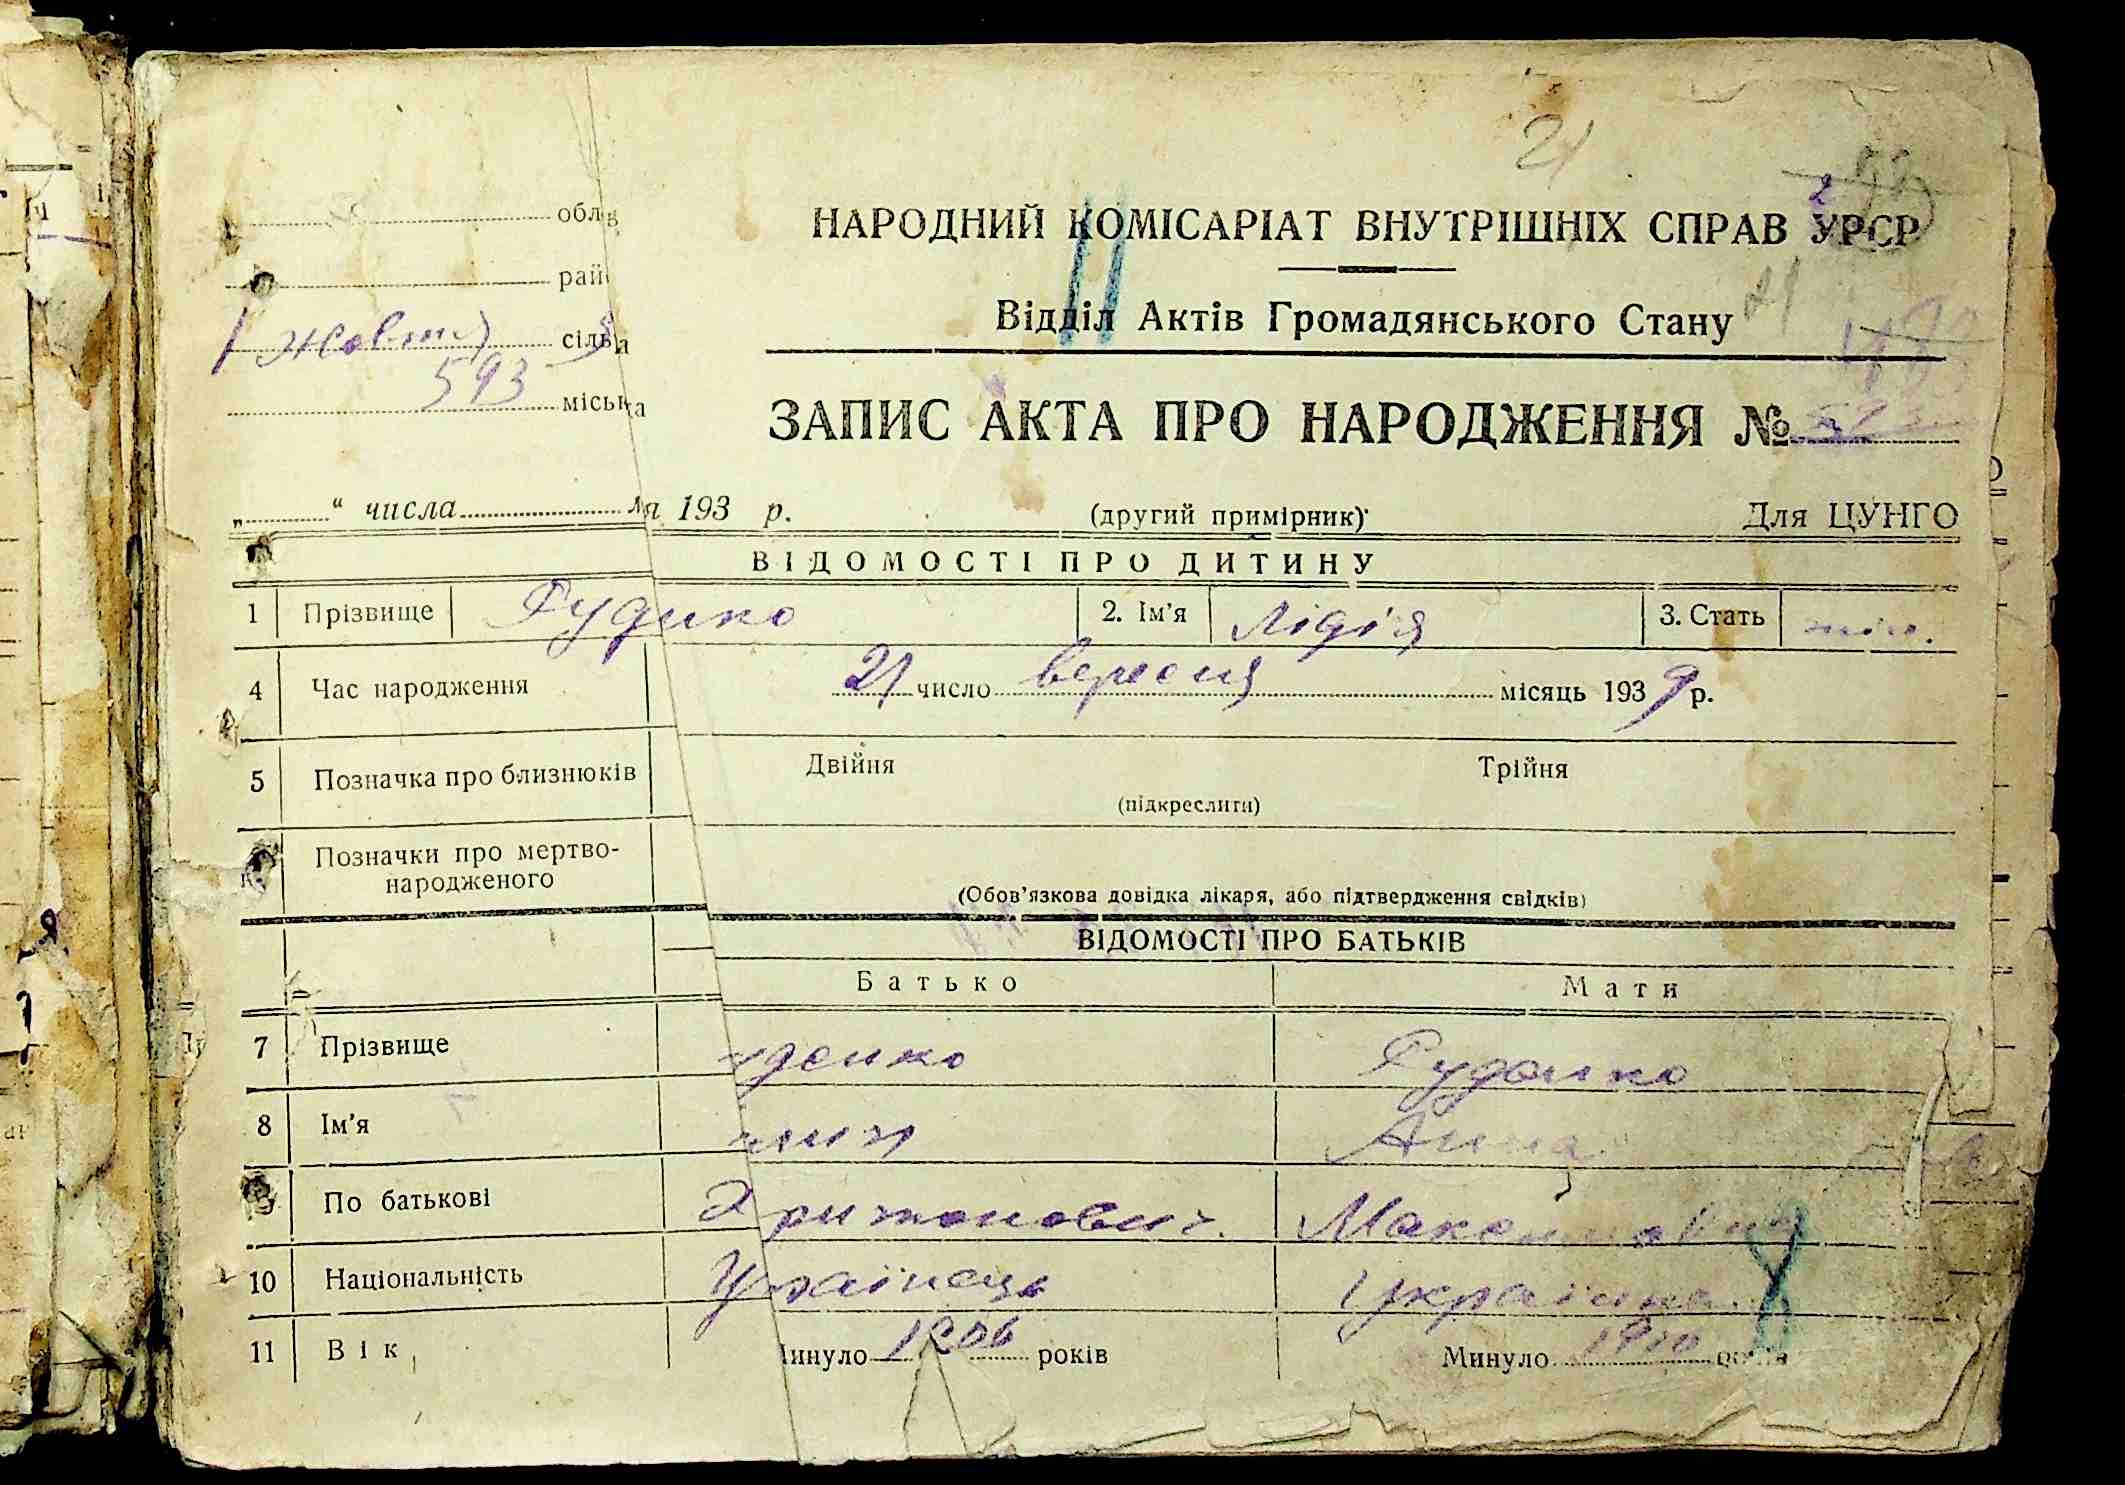 21
НАРОДНИЙ КОМІСАРІАТ ВНУТРІШНІХ СПРАВ УРСР
Відділ Актів Громадянського Стану
обл
рай
Жовтня сільська
593 міська
ЗАПИС АКТА ПРО НАРОДЖЕННЯ № 593
„ “ числа ля 193 р. (другий примірник) Для ЦУНГО
ВІДОМОСТІ ПРО ДИТИНУ
1 Прізвище Руденко 2. Ім’я Лідія 3. Стать жін.
4 Час народження 21 число вересня місяць 1939 р.
5 Позначка про близнюків Двійня Трійня
(підкреслити)
Позначки про мертвонародженого
(Обов’язкова довідка лікаря, або підтвердження свідків)
ВІДОМОСТІ ПРО БАТЬКІВ
Батько Мати
7 Прізвище уденко Руденко
8 Ім’я Анна
9 По батькові Максимовна
10 Національність Українець Українка
11 Вік Минуло 1906 років Минуло 1910 років